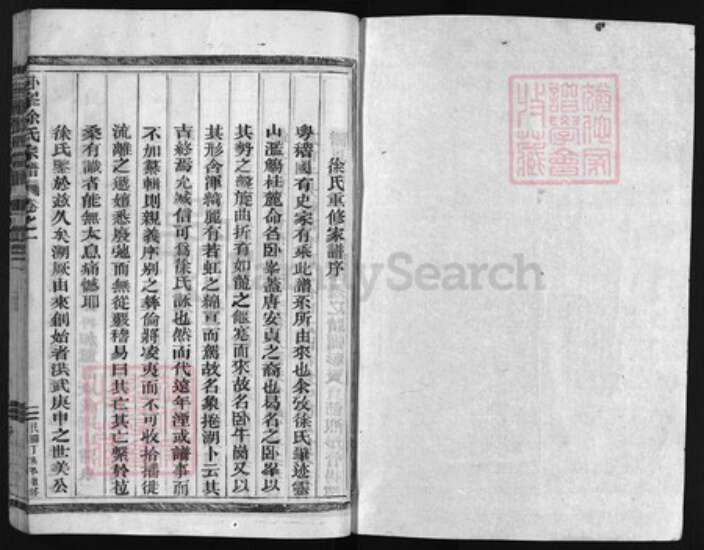 徐氏重修家譜序
粤稽國有史家有乘此譜系所由來也余攷徐氏肇迹靈
山濫觴桂麓命名卧峯蓋唐安貞之裔也易名之卧峯以
其勢之盤旋曲折有如龍之偃蹇而來故名卧牛崗又以
其形含渾綺麗有若虹之綿亘而駕故名象捲湖卜云其
吉終焉允臧信可爲徐氏詠也然而代遠年湮或譜事而
不加纂輯則親義序别之彝倫將凌夷而不可收拾播徙
流離之遷嬗悉廢弛而無從襲稽易曰其亡其亡繫於苞
桑有識者能無太息痛憾耶
徐氏鑒於兹久矣溯厥由來創始者洪武庚申之世美公
徐氏宗譜 卷之一
FamilySearch